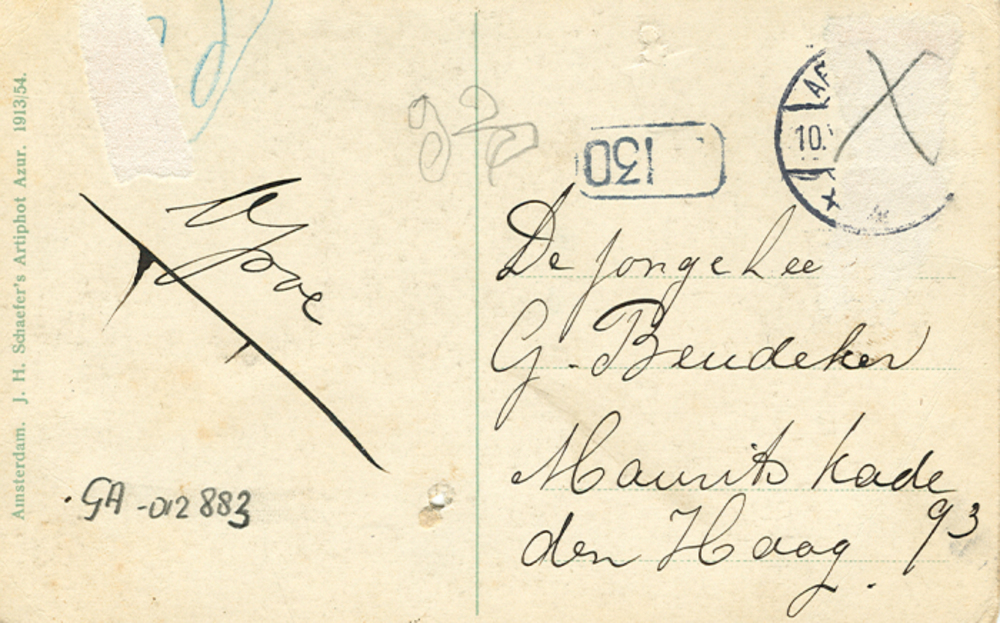 Amsterdam. J. H. Schaefer's Artiphot Azur. 1913/54.
GA-012883
130
10.
De jonge hee
G. Beudeker
Maurits kade
93
den Haag.